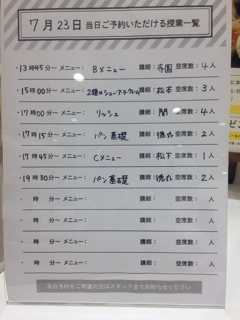 7月23日 当日ご予約いただける授業一覧
・13時45分～ メニュー: Bメニュー 講師: 寺園 空席数: 4人
・15時00分～ メニュー: 2種のシュー・ア・ラ・クレーム 講師: 松本 空席数: 3人
・17時00分～ メニュー: リッシュ 講師: 関 空席数: 4人
・17時15分～ メニュー: パン基礎 講師: 徳丸 空席数: 2人
・17時45分～ メニュー: Cメニュー 講師: 松下 空席数: 1人
・19時30分～ メニュー: パン基礎 講師: 徳丸 空席数: 2人
・ 時 分～ メニュー: 講師: 空席数: 人
・ 時 分～ メニュー: 講師: 空席数: 人
・ 時 分～ メニュー: 講師: 空席数: 人
・ 時 分～ メニュー: 講師: 空席数: 人
当日予約をご希望の方はスタッフまでお知らせください